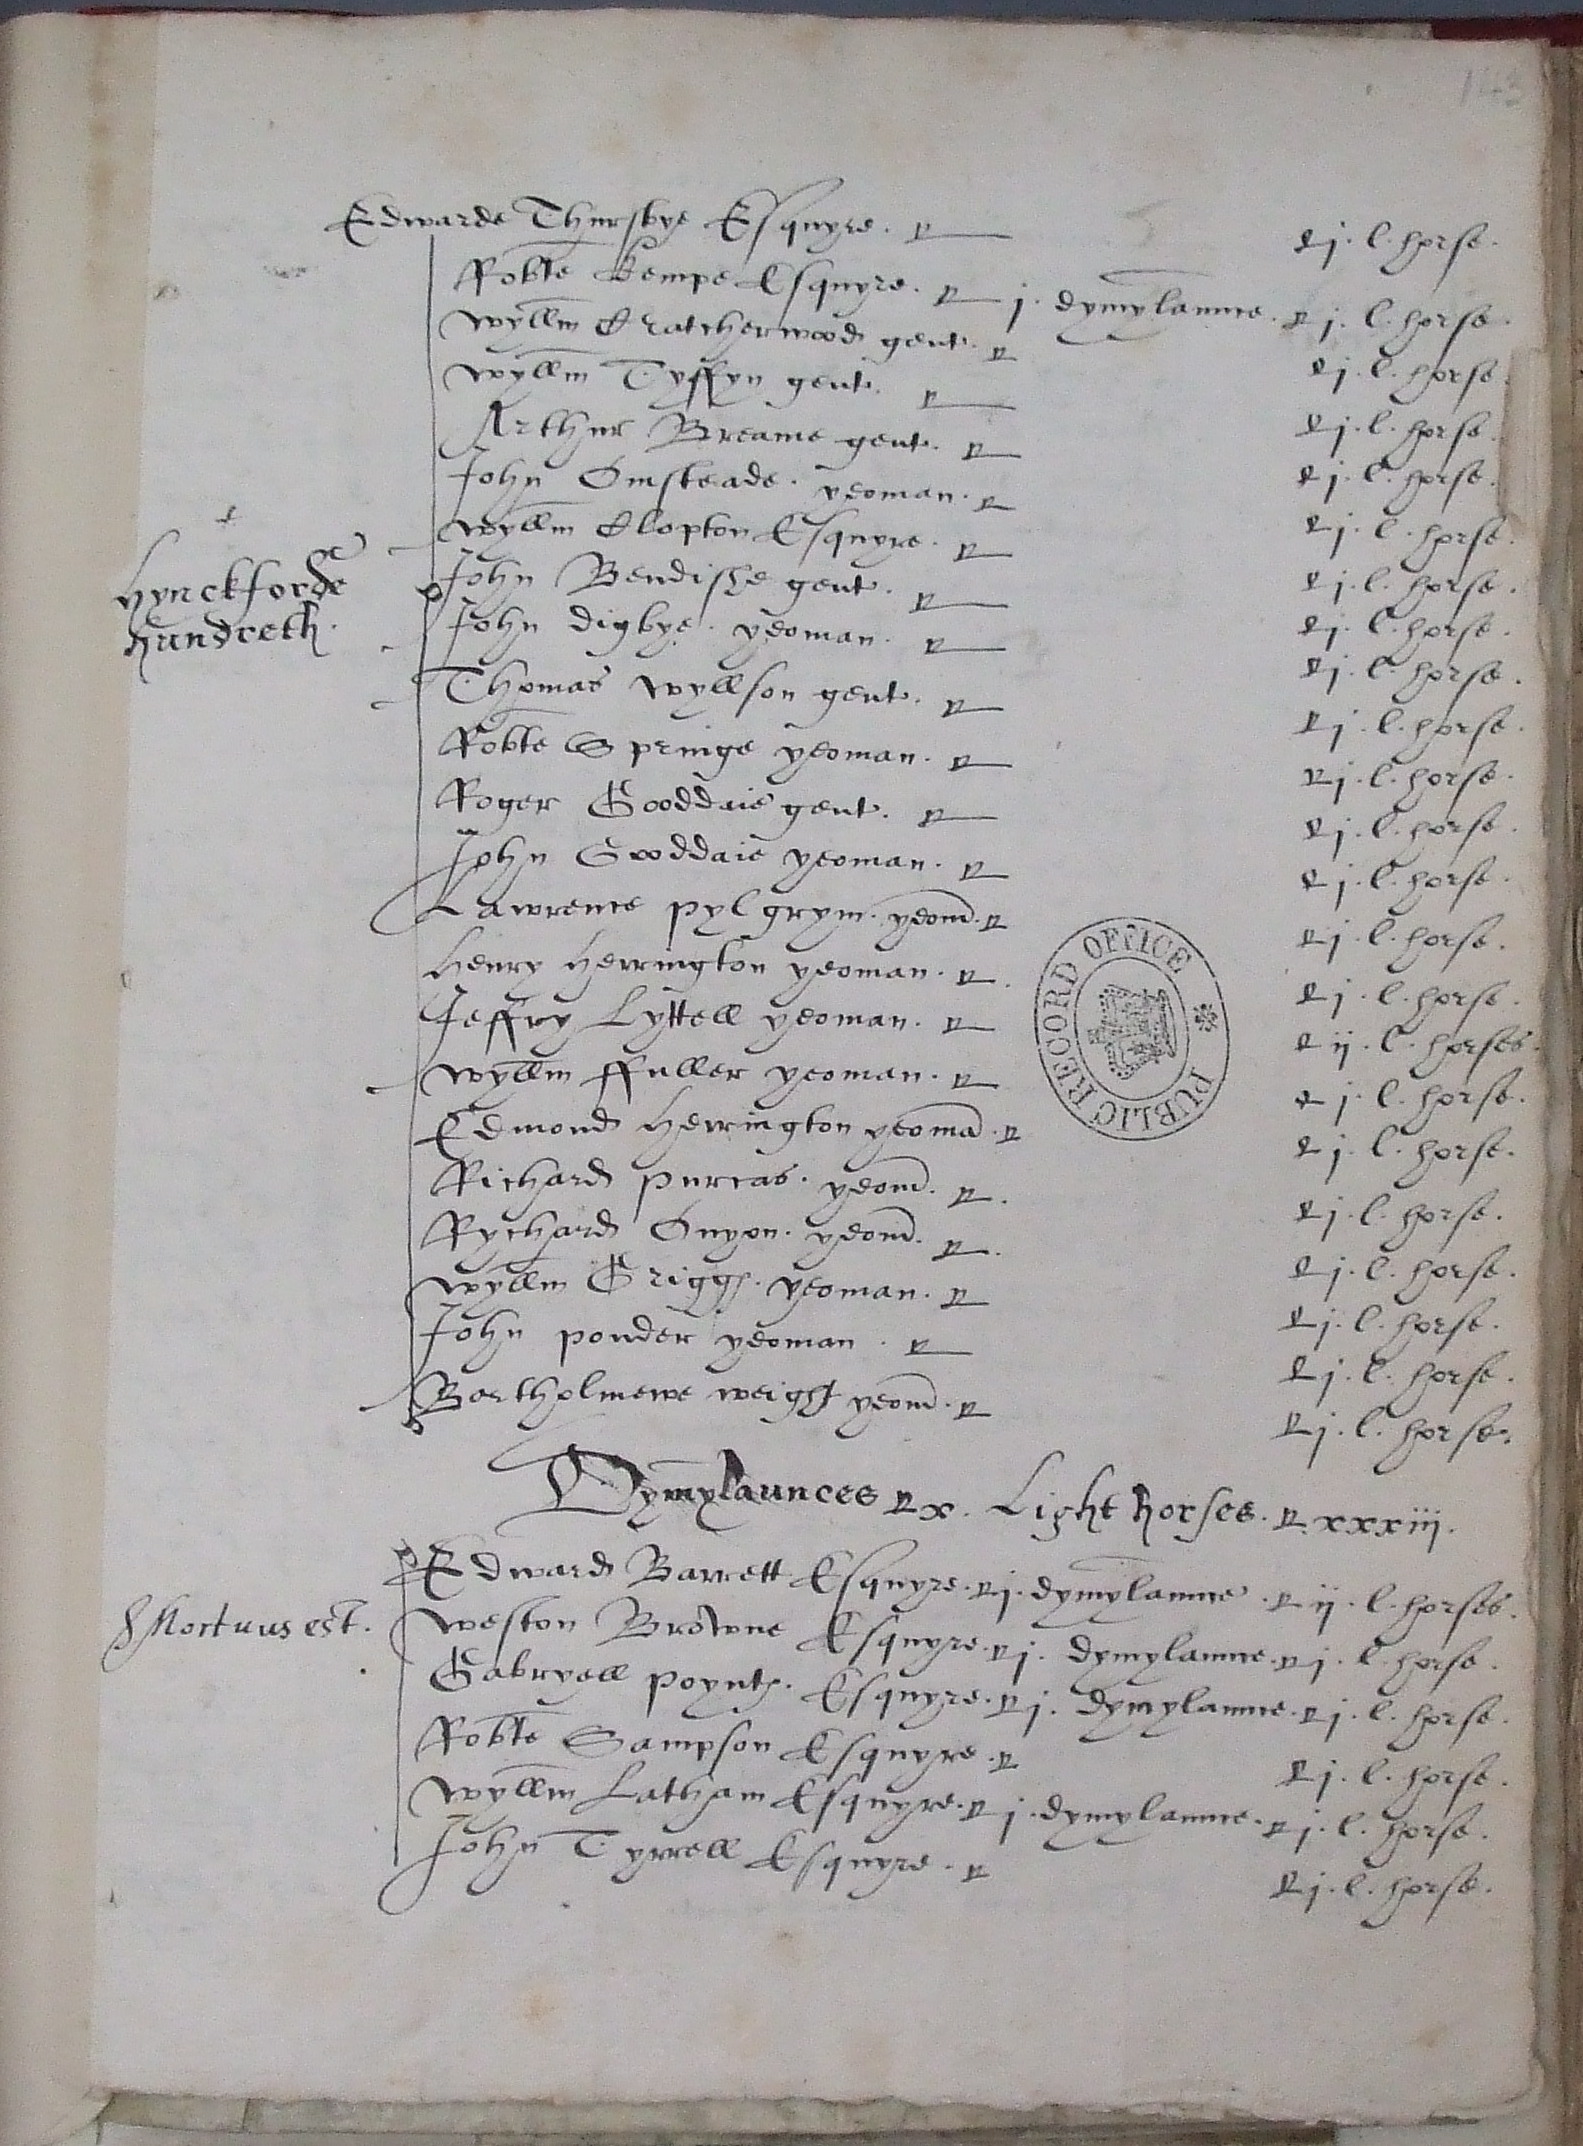 143
Edwarde Thursbye Esquyre. j. l. horse.
Robte Kempe Esquyre. j. dymylaunce. j. l. horse.
Wyllm Cratcherwood gent. j. l. horse.
Wyllm Tyffyn gent. j. l. horse.
Arthur Breame gent. j. l. horse.
John Omsteade. yeoman. j. l. horse.
Wyllm Clopton Esquyre. j. l. horse.
Hynckforde
hundreth.
John Bendishe gent. j. l. horse.
John Digbye. yeoman. j. l. horse.
Thomas Wyllson gent. j. l. horse.
Robte Springe yeoman. j. l. horse.
Roger Gooddaie gent. j. l. horse.
John Gooddaie yeoman. j. l. horse.
Lawrence Pylgrym. yeom. j. l. horse.
Henry Herrington yeoman. j. l. horse.
Jeffry Lyttell yeoman. ij. l. horses.
Wyllm ffuller yeoman. j. l. horse.
Edmond Herrington yeoma. j. l. horse.
Richard Purcas. yeom. j. l. horse.
Rychard Onyon. yeom. j. l. horse.
Wyllm Griggs. yeoman. j. l. horse.
John Ponder yeoman. j. l. horse.
Bartholmewe Weight yeom. j. l. horse.
PUBLIC RECORD OFFICE
Dymylaunces x. Light horses. xxxiij.
Edward Barrett Esquyre. j. dymylaunce. ij. l. horses.
Mortuus est. Weston Browne Esquyre. j. dymylaunce. j. l. horse.
Gabryell Poyntz. Esquyre. j. dymylaunce. j. l. horse.
Robte Sampson Esquyre. j. l. horse.
Wyllm Latham Esquyre. j. dymylaunce. j. l. horse.
John Tyrrell Esquyre. j. l. horse.